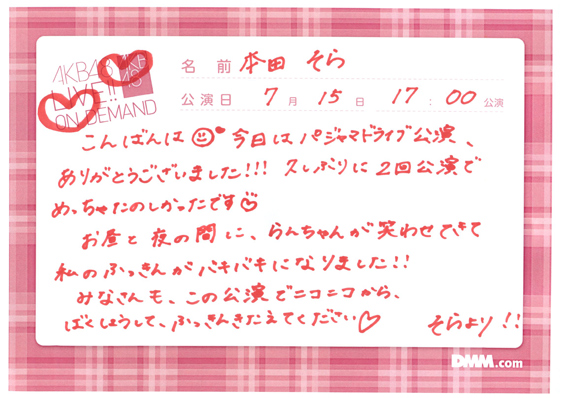 AKB48
LIVE!!
ON DEMAND
AKB
48
名 前 本田 そら
公演日 7月 15日 17:00公演
こんばんは 今日はパジャマドライブ公演、
ありがとうございました!!! 久しぶりに2回公演で
めっちゃたのしかったです♡
お昼と夜の間に、らんちゃんが笑わせてきて
私のふっきんがバキバキになりました!!
みなさんも、この公演でニコニコから、
ばくしょうして、ふっきんきたえてください♡ そらより!!
DMM.com